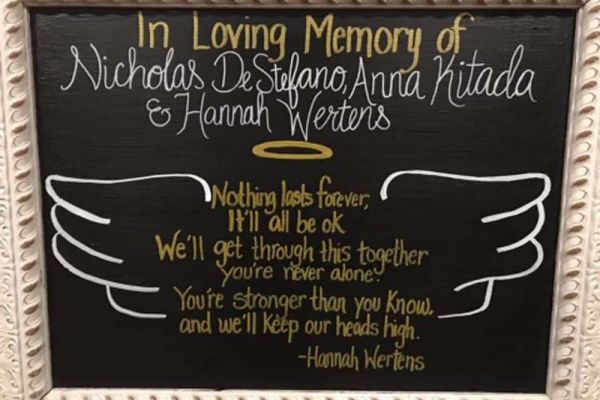 In Loving Memory of
Nicholas DeStefano, Anna Kitada
& Hannah Wertens
Nothing lasts forever,
It'll all be ok
We'll get through this together
You're never alone.
You're stronger than you know.
and we'll keep our heads high.
-Hannah Wertens